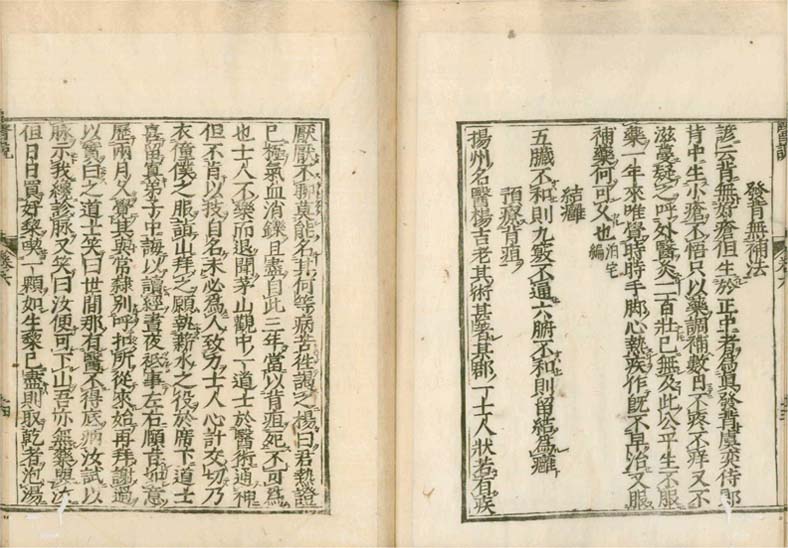 發背無補法
諺云背無好瘡但生於正中者爲眞發背虞奕侍郎
背中生小瘡不悟只以藥調補數日不疼不痒又不
滋蔓疑之呼外醫灸二百壯已無及此公平生不服
藥一年來唯覺時時手脚心熱疾作旣不早治又服
補藥何可久也泊宅編
結癰
五臟不和則九竅不通六腑不和則留結爲癰
預療背疽
揚州名醫楊吉老其術甚著某郡一士人狀若有疾
厭厭不聊莫能名其何等病苦往謁之楊曰君熱證
已極氣血消鑠且盡自此三年當以背疽死不可爲
也士人不樂而退聞茅山觀中一道士於醫術通神
但不肯以技自名未必爲人致力士人心計交切乃
衣僮僕之服詣山拜之願執薪水之役於席下道士
喜留寘弟子中誨以讀經晝夜祗事左右顧旨如意
歷兩月久覺其與常隸別呼扣所從來始再拜謝過
以實白之道士笑曰世間那有醫不得底病汝試以
脉示我纔診脉又笑曰汝便可下山吾亦無藥與汝
但日日買好梨喫一顆如生梨已盡則取乾者泡湯
醫說
卷六